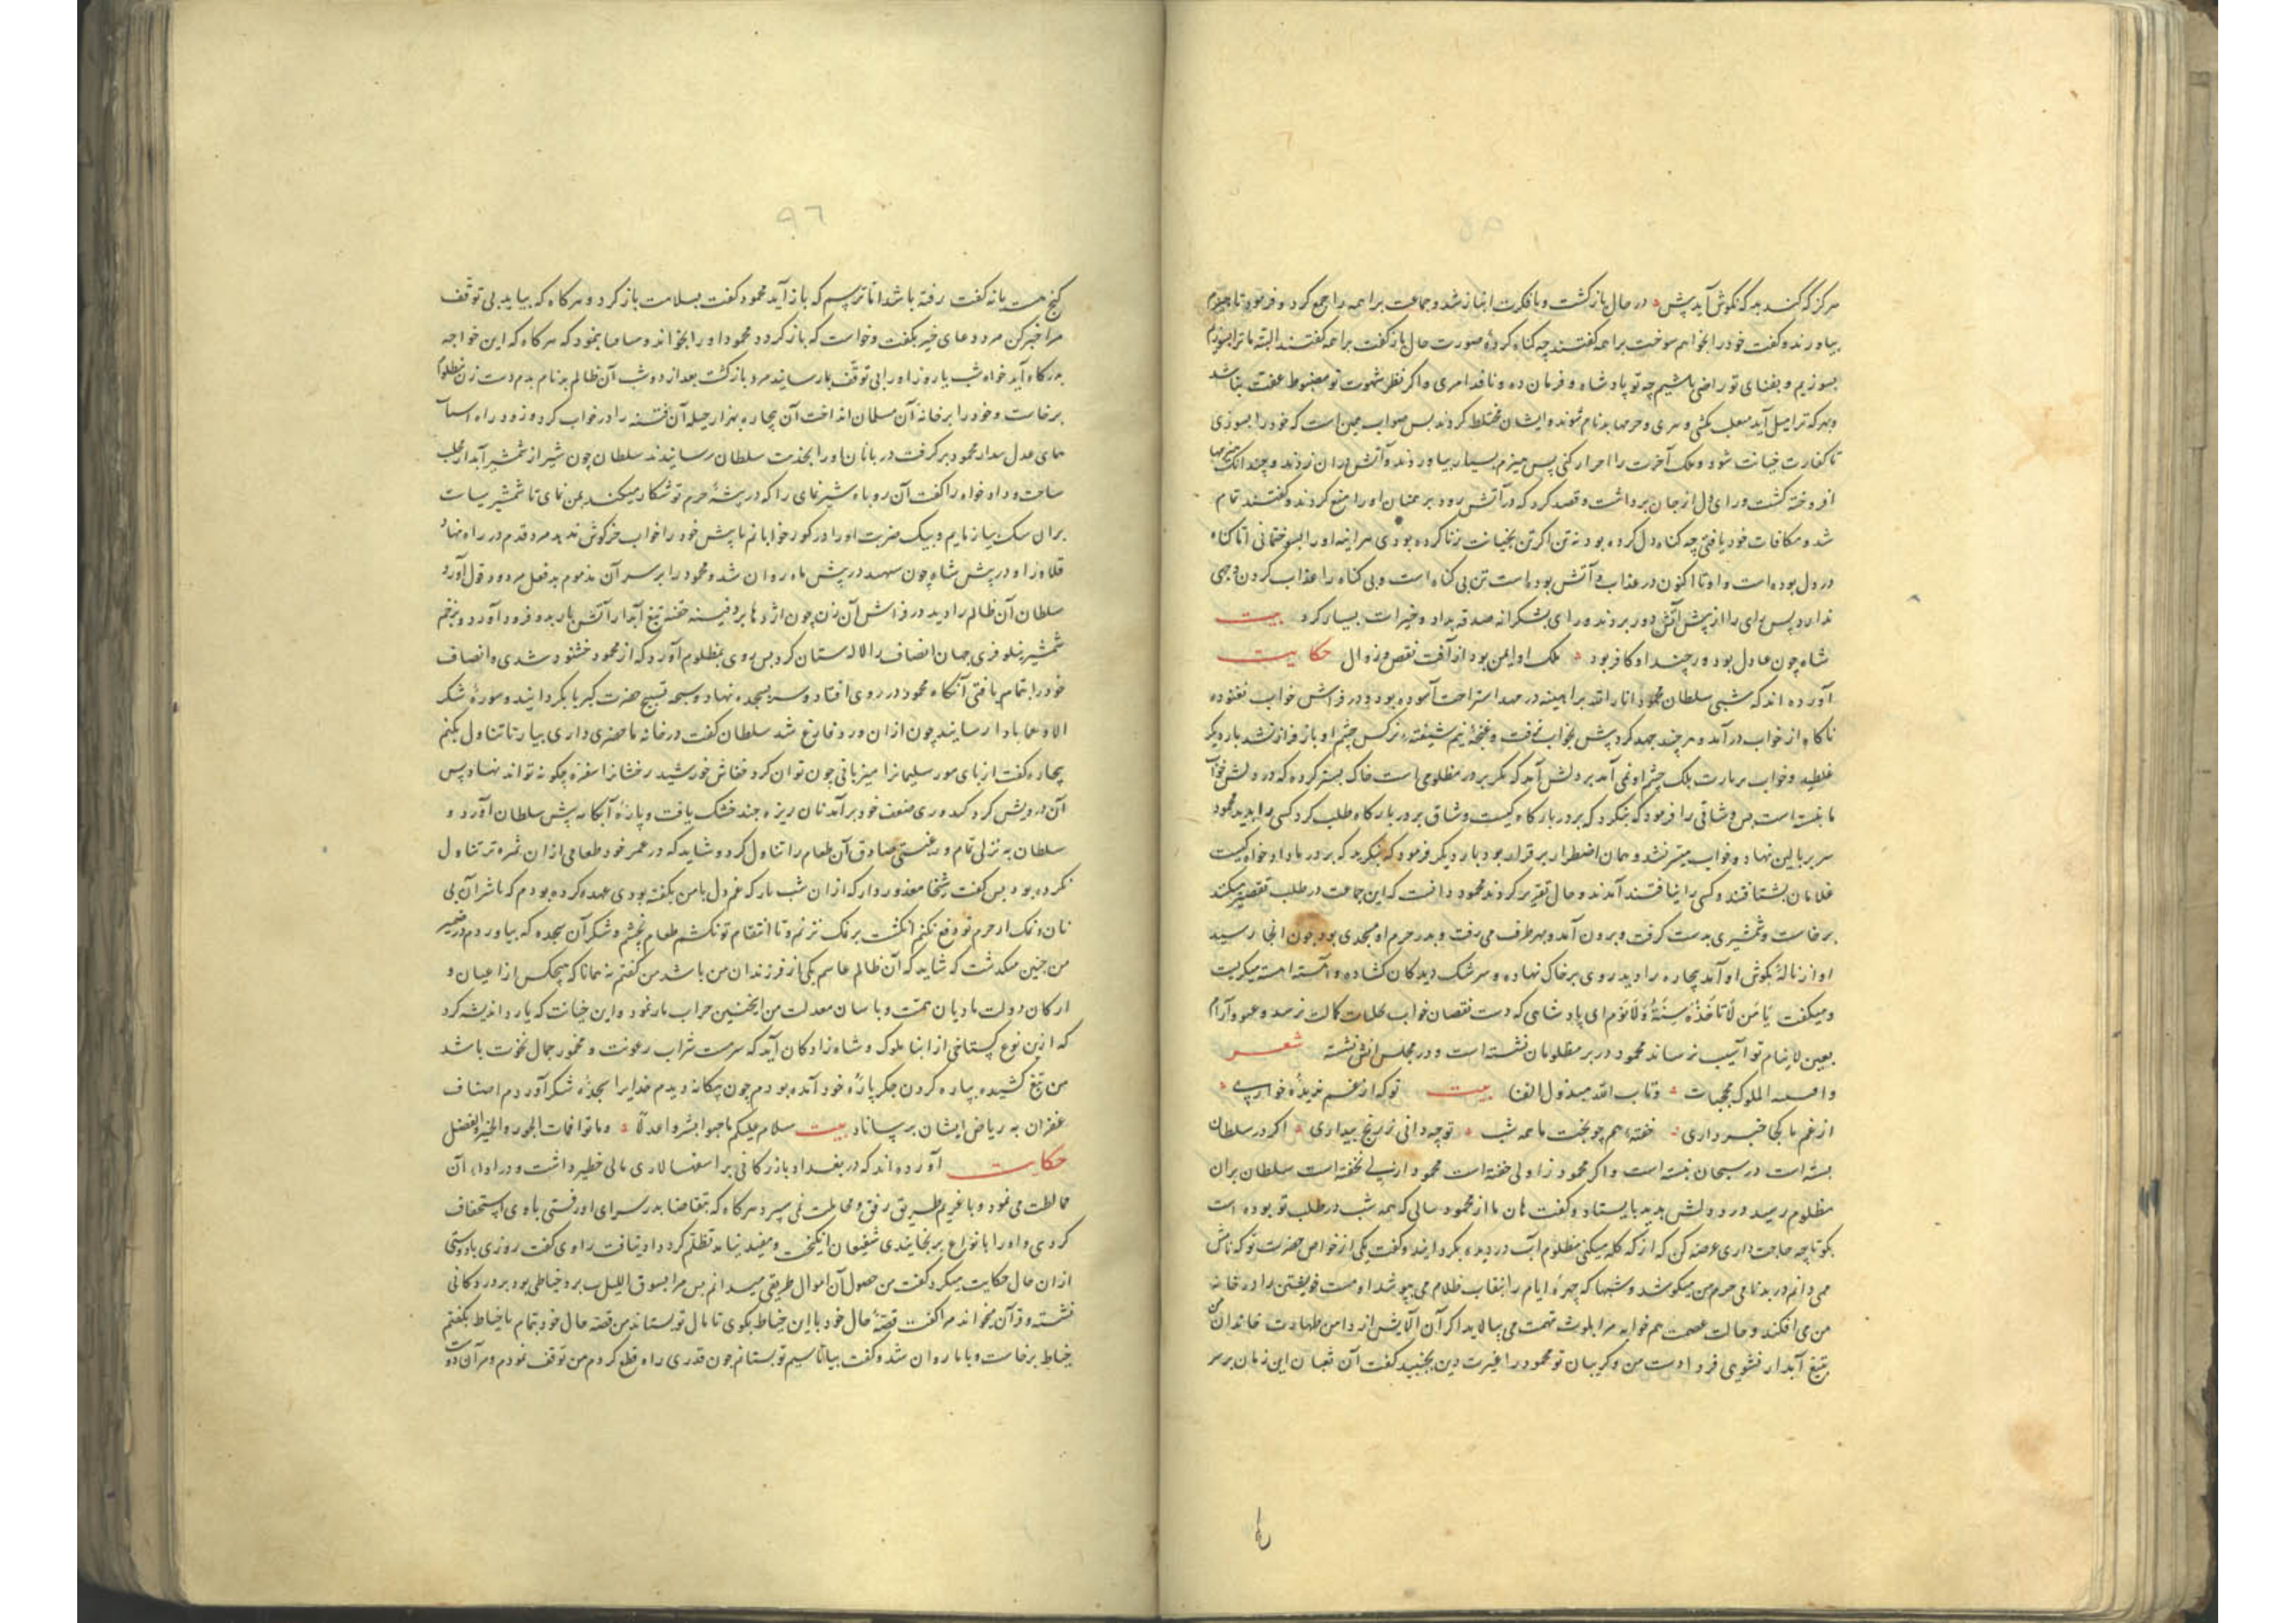 هرکز که کند بد که نکوش آید پیش در حال بازگشت و با فکرت انباز شد و جماعت براهمه را جمع کرد و فرمود تا هیزم
بیاورند و گفت خود را بخواهم سوخت براهمه گفتند چه گناه کردهٔ صورت حال بازگفت براهمه گفتند البته ما ترا بسوزیم
بسوزیم و بفنای تو راضی باشیم چه تو پادشاه و فرمان ده و نافذ امری و اگر نظر شهوت تو مضبوط عفت نباشد
و بهر که ترا میل آید بکشی و حرمها بدنام شوند و ایشان مختلط کردند پس صواب همین است که خود را بسوزی
تا کفارت خیانت شود و ملک آخرت را احراز کنی پس هیزم بسیار بیاوردند و آتش دران زدند و چندانک
افروخته گشت و رای دل از جان برداشت و قصد کرد که در آتش رود برهمنان او را منع کردند و گفتند تمام
شد و مکافات خود یافتی چه گناه دل کرده بود نه تن اگر تن بخیانت زنا کرده بودی هر اینه او را بسوختمانی اما گناه
در دل بوده است و او تا اکنون در عذاب و آتش بوده است تن بی گناه است و بی گناه را عذاب کردن وجهی
ندارد پس رای را از پیش آتش دور بردند و رای بشکرانه صدقه بداد و خیرات بسیار کرد بیت
شاه چون عادل بود ور چند او کافر بود ملک او ایمن بود از آفت نقص و زوال حکایت
آورده اند که شبی سلطان محمود انار الله براهینه در مهد استراحت آسوده بود و در فراش خواب نغنوده
ناگاه از خواب درآمد و هر چند جهد کرد پیش بخواب نرفت و غنچهٔ نیم شیفته نرکس چشم او باز فراز نشد بار دیگر
غلطید و خواب بر پلک چشم او نمی آمد بر دلش آمد که مگر بر در مظلومی است خاک بستر کرده که در دلش خواب
ما بسته است پس وشاقی را فرمود که بنگرد که بر در بارگاه کیست وشاق بر در بارگاه طلب کرد کسی را ندید محمود
سر بر بالین نهاد و خواب میسر نشد و همان اضطرار برقرار بود بار دیگر فرمود که بنگرید که بر در ما دادخواه کیست
غلامان بشتافتند و کسی را نیافتند آمدند و حال تقریر کردند محمود دانست که این جماعت در طلب تقصیر میکنند
برخاست و شمشیری بدست گرفت و برون آمد و بهر طرف می رفت و بدر حرم او مسجدی بود چون آنجا رسید
آواز نالهٔ بگوش او آمد بیچاره را دید روی بر خاک نهاده و سرشک دیدگان کشاده و آهسته آهسته میگریست
و میگفت یا من لا تأخذه سنة ولا نوم ای پادشاهی که دست نقصان خواب بکمالت نرسد و غنو و آرام
بعین لاینام تو آسیب نرساند محمود در بر مظلومان نشسته است و در مجلس انس نشسته شعر
الملوک محجبات وباب الله مبذول الفنا بیت تو که از غم نزیدهٔ خواری
از غم ما کجا خبر داری خفتهٔ هم چو بخت ما همه شب تو چه دانی ز رنج بیداری اگر در سلطان
بسته است در سبحان نبسته است و اگر محمود زاولی خفته است محمود ازلی نخفته است سلطان بران
مظلوم رسید و در دلش بدید بایستاد و گفت هان ما از محمود سالی که همه شب در طلب تو بوده است
بگو تا چه حاجت داری عرضه کن که از که گله میکنی مظلوم آب در دیده بگردانید و گفت یکی از خواص حضرت تو که نامش
می دانم در بدنامی حرم من میکوشد و شبها که چهرهٔ ایام را بنقاب ظلام می پوشد او مست خویشتن را در خانه
من می افکند و حالت عصمت هم خوابه مرا بلوث تهمت می بیالاید اگر آن آلایش از دامن طهارت خاندان من
بتیغ آبدار نشویی فردا دست من و گریبان تو محمود را غیرت دین بجنبید گفت آن این زمان بر سر
۹۶
گنج هست یا نه گفت رفته باشد اما ترسم که باز آید محمود گفت بسلامت باز گرد و هرگاه که بیاید بی توقف
مرا خبر کن مرد دعای خیر بگفت و خواست که باز گردد محمود او را بخواند و بنمود که هر گاه که این خواجه
بدرگاه آید خواه شب یا روز او را بی توقف بما رسانید مرد بازگشت بعد از دو شب آن ظالم بدنام بدم دست زن مظلوم
برخاست و خود را بر خانهٔ آن مسلمان انداخت آن بیچاره بهزار حیله آن فتنه را در خواب کرد و زود راه
عدل محمود برگرفت دربانان او را بخدمت سلطان رسانیدند سلطان چون شیر از شمشیر آبدار مخلب
ساخت و دادخواه را گفت آن روباه شیر نمای را که در بیشهٔ حرم تو شکار میکند بمن نمای تا شمشیر سیاست
بران سگ بیازمایم و بیک ضربت او را در گور خوابانم تا پیش خود را خواب خرگوش ندهد مرد قدم در راه نهاد
قلاوز او در پیش شاه چون در پیش ماه روان شد و محمود را بر سر آن مذموم بدفعل مردود قول آورد
سلطان آن ظالم را دید در فراش آن زن چون اژدها بر دفینه خفته تیغ آبدار آتش بار بدو فرود آورد و بزخم
شمشیر نیلوفری جهان انصاف را لالستان کرد پس روی بمظلوم آورد که از محمود خشنود شدی و انصاف
خود را بتمام یافتی آنگاه محمود در روی افتاد و سر بسجده نهاد و سبحهٔ تسبیح حضرت کبریا بگردانید و سورهٔ شکر
رسانید چون از ان ورد فارغ شد سلطان گفت در خانه ما حضری داری بیار تا تناول بکنم
بیچاره گفت از پای مور سلیمانرا میزبانی چون توان کرد خفاش خورشید رخشانرا سفره چگونه تواند نهاد پس
آن درویش گرد کندوری ضعف خود برآمد نان ریزه چند خشک یافت و پارهٔ آبکامه پیش سلطان آورد و
سلطان به نزلی تمام و رغبتی صادق آن طعام را تناول کرد و شاید که در عمر خود طعامی از ان ثمره تر تناول
نکرده بود پس گفت شیخا معذور دار که از ان شب باز که غم دل با من بگفته بودی عهد کرده بودم که تا شر آن بی
نان و نمک از حرم تو دفع نکنم انگشت بر نمک نزنم و تا انتقام تو نکشم طعام نچشم و شکر آن سجده که بیاوردم در ضمیر
من چنین میگذشت که شاید که آن ظالم غاشم یکی از فرزندان من باشد من گفتم نه همانا که هیچکس از اعیان و
ارکان دولت ما دیان همت و با سان معدلت من اینچنین نمود و این خیانت که یارد اندیشه کرد
که ازین نوع گستاخی از ابنا ملوک و شاه زادگان آید که سرمست شراب رعونت و مخمور جمال نخوت باشد
من تیغ کشیده بپاره کردن جگر پارهٔ خود آمده بودم چون بیگانه دیدم خدایرا سجدهٔ شکر آوردم اصناف
غفران به ریاض ایشان برساناد بیت سلام علیکم والفضل
حکایت آورده اند که در بغداد بازرگانی بر اسفهسالاری مالی خطیر داشت و در ادای آن
مماطلت می نمود و با غریم طریق رفق و مجاملت نمی سپرد هرگاه که بتقاضا بدر سرای او رفتی با وی استخفاف
کردی و او را بانواع برنجانیدی شفیعان انگیخت و مفید نیامد تظلم کرد داد نیافت راوی گفت روزی با دوستی
ازان حال حکایت میکرد گفت من حصول آن اموال طریقی میدانم پس مرا بسوق اللیل ببرد خیاطی بود بر در دکانی
نشسته و قرآن میخواند مرا گفت قصهٔ حال خود با این خیاط بگوی تا مال تو بستاند من قصه حال خود بتمام با خیاط بگفتم
خیاط برخاست و با ما روان شد و گفت بیا تا سیم تو بستانم چون قدری راه قطع کردم من توقف نمودم و مر آن دوست